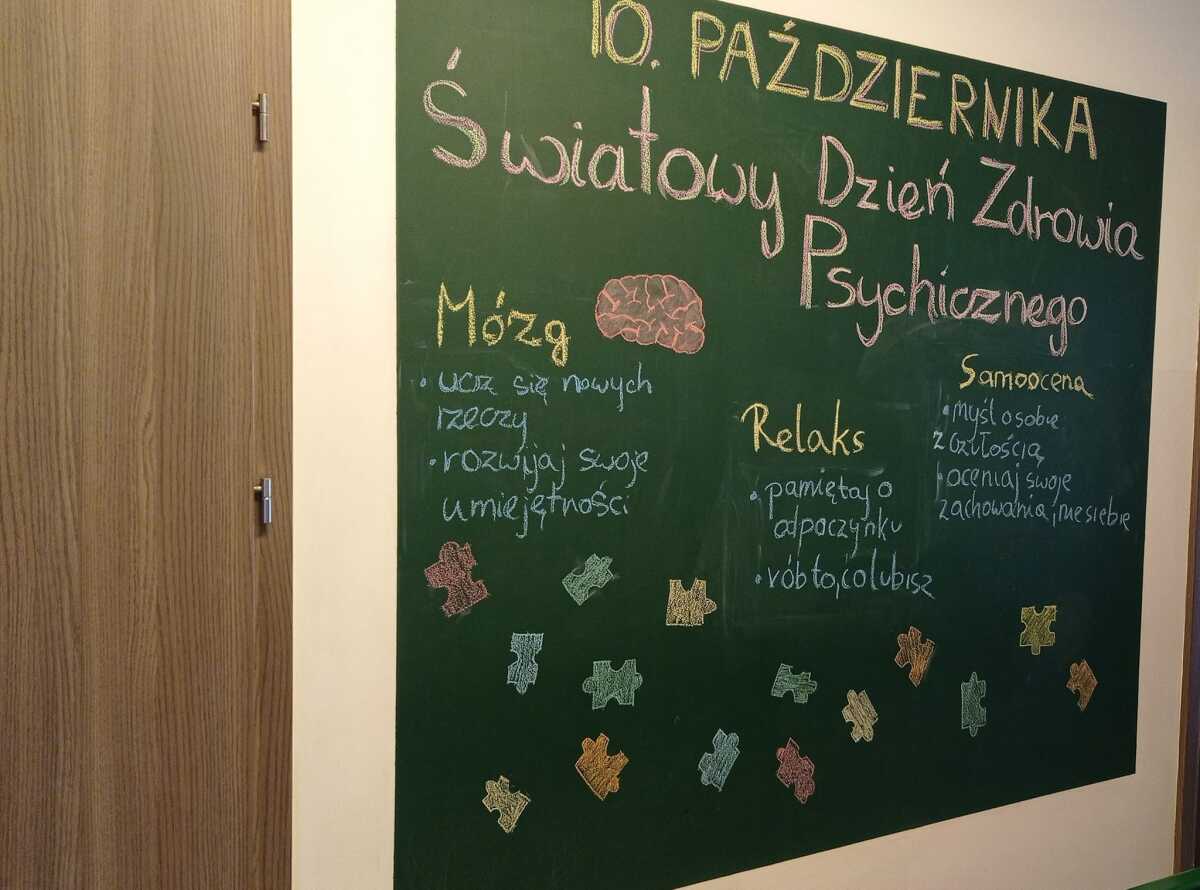 10. PAŹDZIERNIKA
Światowy Dzień Zdrowia
Psychicznego
Mózg
• ucz się nowych
rzeczy
• rozwijaj swoje
umiejętności
Relaks
• pamiętaj o
odpoczynku
• rób to, co lubisz
Samoocena
• myśl o sobie
z czułością
• oceniaj swoje
zachowania, nie siebie